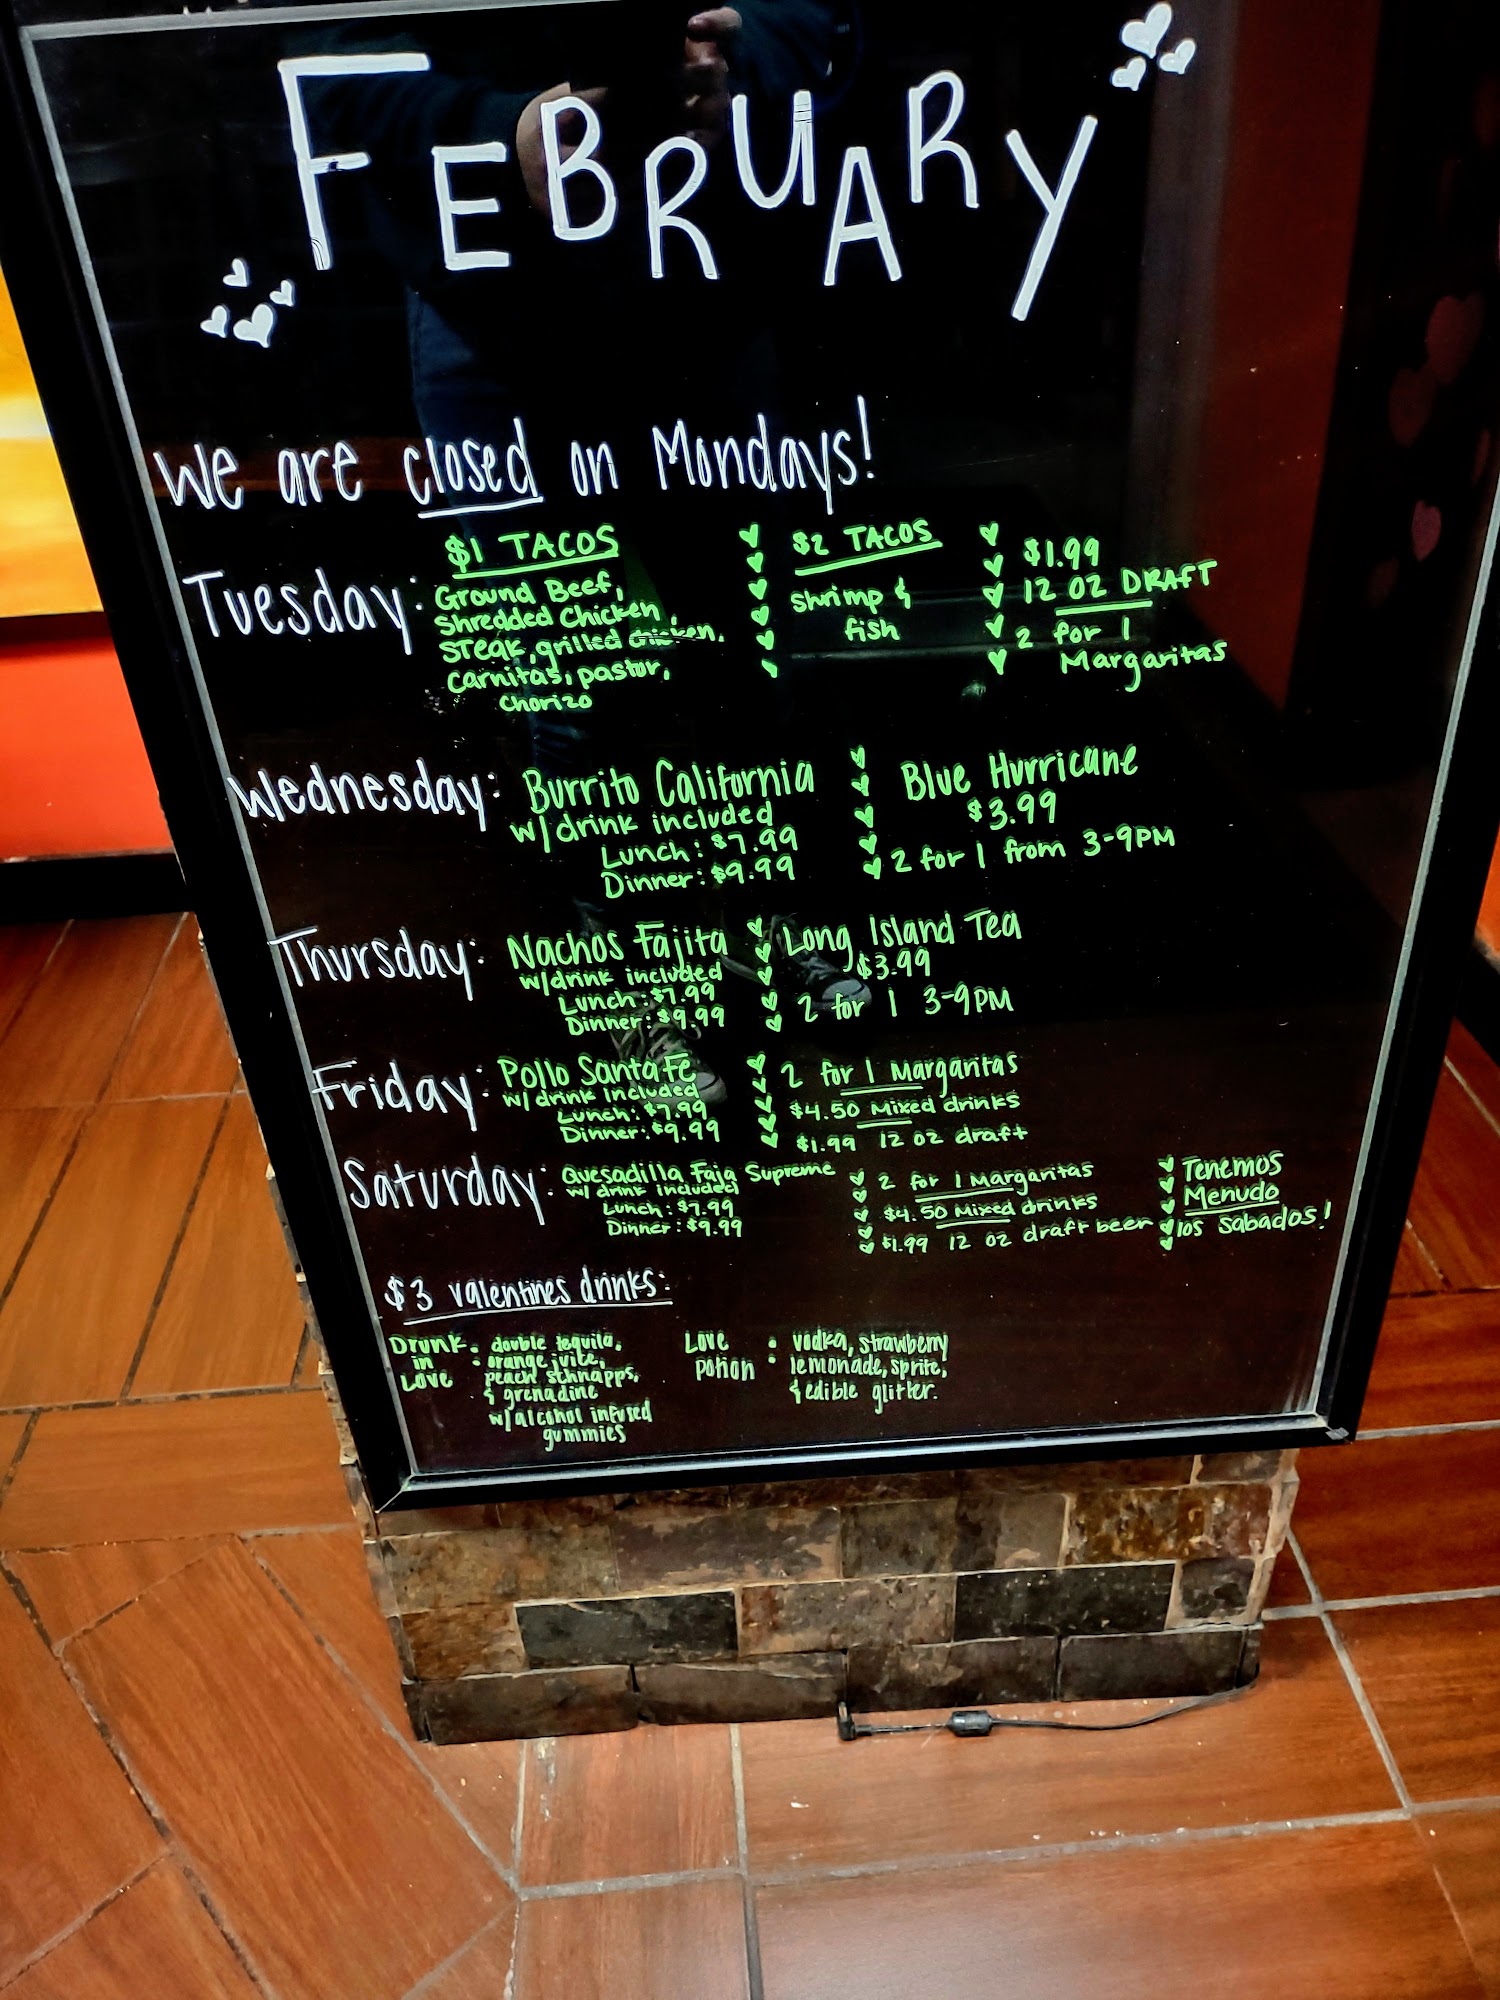 FEBRUARY
We are closed on Mondays!
Tuesday:
$1 TACOS
Ground Beef,
Shredded Chicken,
STeak, grilled chicken,
carnitas, pastor,
Chorizo
$2 TACOS
shrimp &
fish
$1.99
12 OZ DRAFT
2 for 1
Margaritas
Wednesday:
Burrito California
w/drink included
Lunch: $7.99
Dinner: $9.99
Blue Hurricane
$3.99
2 for 1 from 3-9PM
Thursday:
Nachos Fajita
w/drink included
Lunch: $7.99
Dinner: $9.99
Long Island Tea
$3.99
2 for 1 3-9PM
Friday:
Pollo Santa Fe
w/ drink included
Lunch: $7.99
Dinner: $9.99
2 for 1 Margaritas
$4.50 Mixed drinks
$1.99 12 oz draft
Saturday:
Quesadilla Faja Supreme
w/ drink included
Lunch: $7.99
Dinner: $9.99
2 for 1 Margaritas
$4.50 Mixed drinks
$1.99 12 oz draft beer
Tenemos
Menudo
los sabados!
$3 valentines drinks:
Drunk
in
Love
: double tequila,
orange juice,
peach schnapps,
& grenadine
w/alcohol infused
gummies
Love
potion
: vodka, strawberry
lemonade, sprite,
& edible glitter.